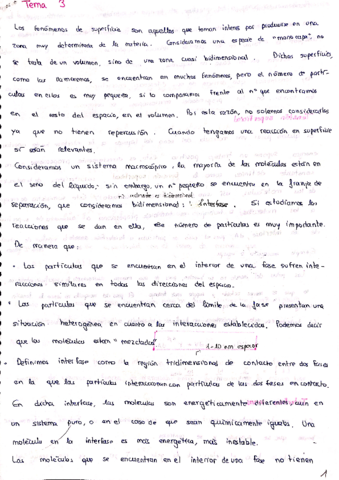 Tema 3
Los fenómenos de superficie son aquellos que toman interés por producirse en una
zona muy determinada de la materia. Consideramos una especie de "monocapa", no
se trata de un volumen, sino de una zona cuasi bidimensional. Dichas superficies,
como las membranas, se encuentran en muchos fenómenos, pero el número de partí-
culas en estos es muy pequeño, si lo comparamos frente al nº que encontramos
en el resto del espacio, en el volumen. Por esta razón, no solemos considerarlos
ya que no tienen repercusión. Cuando tengamos una reacción en superficie
sí serán relevantes.
Consideramos un sistema macroscópico, la mayoría de las moléculas están en
el seno del líquido, sin embargo, un nº pequeño se encuentra en la franja de
separación, que consideramos bidimensional: Interfase. Si estudiamos las
reacciones que se dan en ella, este número de partículas es muy importante.
De manera que:
• Las partículas que se encuentran en el interior de una fase sufren inte-
racciones similares en todas las direcciones del espacio.
• Las partículas que se encuentran cerca del límite de la fase presentan una
situación heterogénea en cuanto a las interacciones establecidas. Podemos decir
que las moléculas están "mezcladas" 1-10 nm espesor
• Definimos interfase como la región tridimensional de contacto entre dos fases
en la que las partículas interaccionan con partículas de las dos fases en contacto.
En dicha interfase, las moléculas son energéticamente diferentes, aún en
un sistema puro, o en el caso de que sean químicamente iguales. Una
molécula en la interfase es más energética, más inestable.
Las moléculas que se encuentran en el interior de una fase no tienen
1